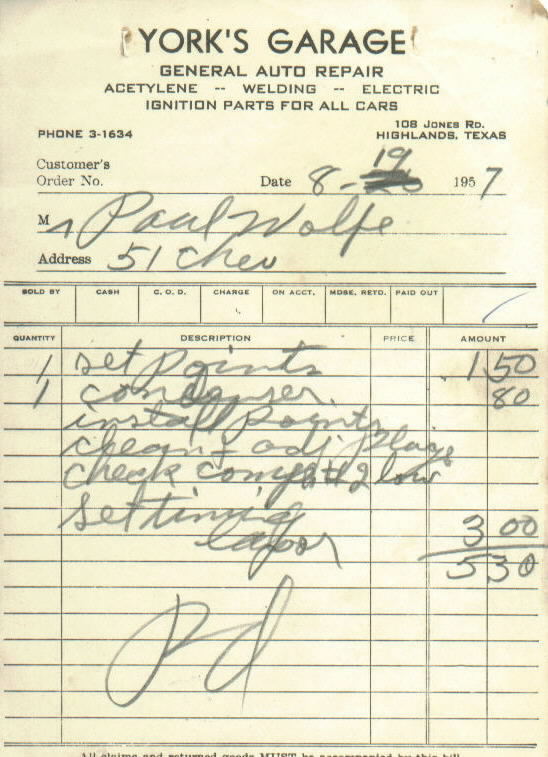 YORK'S GARAGE
GENERAL AUTO REPAIR
ACETYLENE -- WELDING -- ELECTRIC
IGNITION PARTS FOR ALL CARS
108 JONES RD.
PHONE 3-1634 HIGHLANDS, TEXAS
Customer's
Order No. Date 8-19 1957
Mr Paul Wolfe
Address 51 Chev
SOLD BY CASH C. O. D. CHARGE ON ACCT. MDSE. RETD. PAID OUT
QUANTITY DESCRIPTION PRICE AMOUNT
1 set points 1 50
1 condenser 80
install points
clean + adj plugs
check comp #2 low
set timing
labor 3 00
5 30
Pd
All claims and returned goods MUST be accompanied by this bill